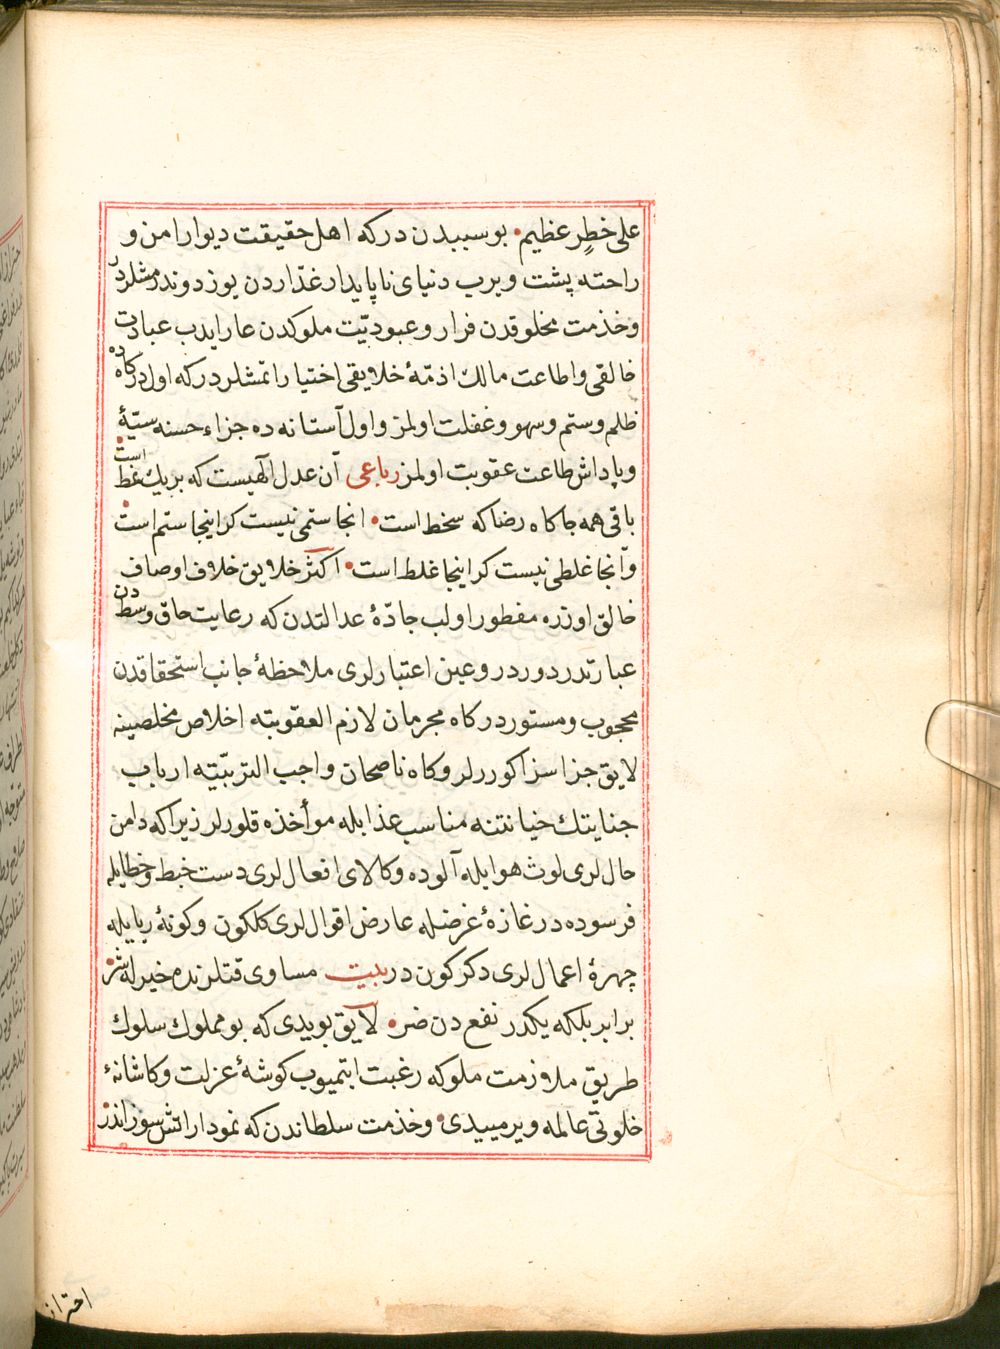 على خطر عظيم • بو سببدن در كه اهل حقيقت ديوار امن و
راحته پشت ويرب دنياى ناپايدار غدّاردن يوز دوندرمشلردر
وخذمت مخلوقدن فرار وعبوديّت ملوكدن عار ايدب عبادت
خالقى واطاعت مالك اذمّهٔ خلايقى اختيار اتمشلردر كه اول دركاه ده
ظلم وستم وسهو وغفلت اولمز واول آستانه ده جزاء حسنه سيّئهٔ
وپاداش طاعت عقوبت اولمز رباعى آن عدل آلهيست كه بر يك نمط است
باقى همه جا كاه رضا كه سخط است • انجا ستمى نيست كر اينجا ستم است
وآنجا غلطى نيست كر اينجا غلط است • اكثر خلايق خلاف اوصاف
خالق اوزره مفطور اولب جادّهٔ عدالتدن كه رعايت حاق وسطدن
عبارتدر دوردر وعين اعتبارلرى ملاحظهٔ جانب استحقاقدن
محجوب ومستوردر كاه مجرمان لازم العقوبته اخلاص مخلصينه
لايق جزا سزا كوررلر وكاه ناصحان واجب التربيّيته ارباب
جنايتك خيانتنه مناسب عذابله موأخذه قلورلر زيرا كه دامن
حاللرى لوث هوا يله آلوده وكالاى افعاللرى دست خبط وخطايله
فرسوده در غازهٔ غرضله عارض اقواللرى كلكون وكونهٔ ريايله
چهرهٔ اعماللرى دكركون در بيت مساوى قتلرنده خيرله شر •
برابر بلكه يكدر نفع دن ضر • لايق بويدى كه بو مملوك سلوك
طريق ملازمت ملوكه رغبت ايتميوب كوشهٔ عزلت وكاشانهٔ
خلوتى عالمه ويرميیدى • وخذمت سلطاندن كه نمودار آتش سوزاندر •
احتراز